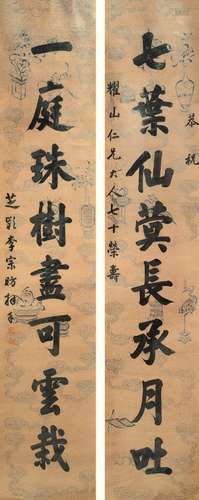 恭祝
耀山仁兄大人七十榮壽
七葉仙蓂長承月吐
一庭珠樹盡可雲栽
芝齡李宗昉拜手